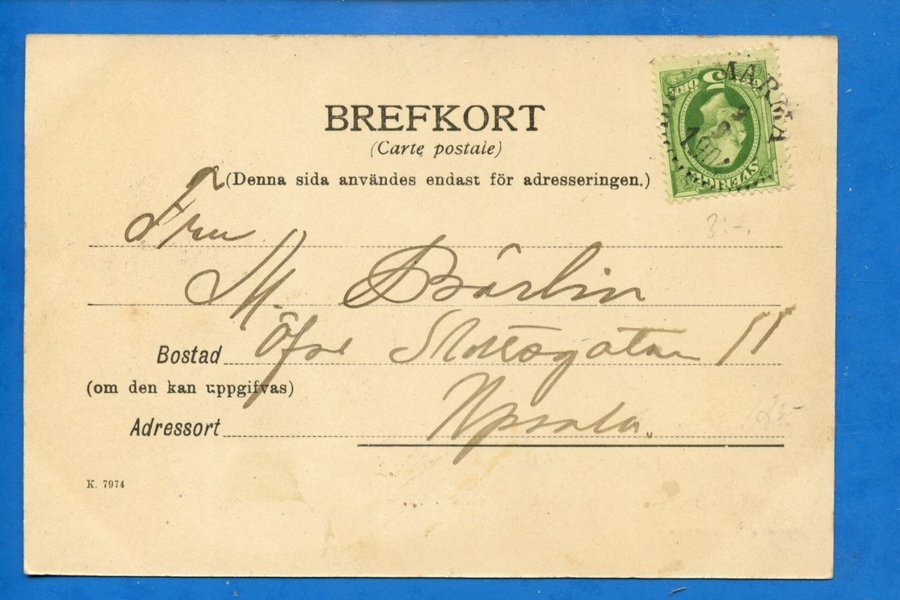 BREFKORT
(Carte postale)
(Denna sida användes endast för adresseringen.)
MARMA
5 ÖRE
SVERIGE
3:-.
Fru
M. Bärlin
Bostad Öfre Slottsgatan 11
(om den kan uppgifvas)
Adressort Upsala.
K. 7974